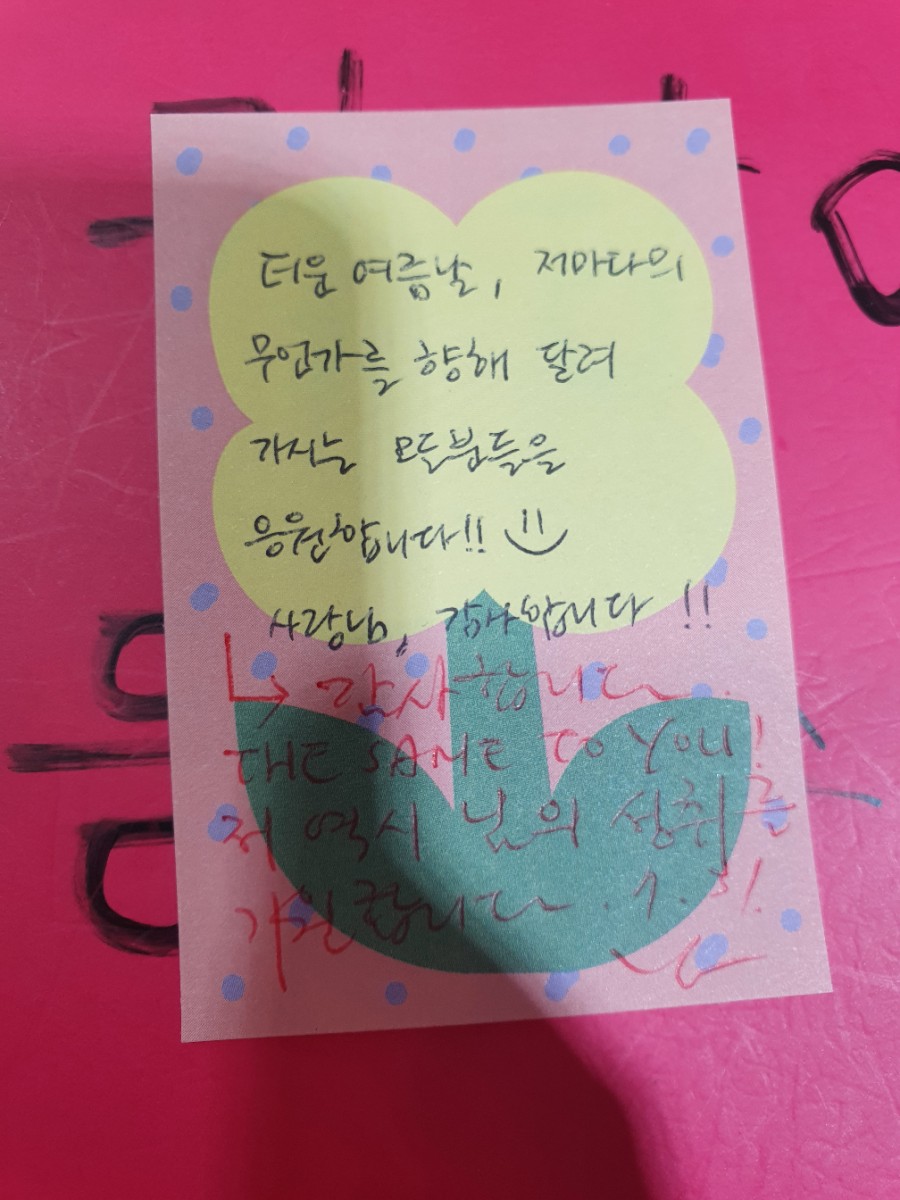 더운 여름날, 저마다의
무언가를 향해 달려
가시는 모든분들을
응원합니다!!
사장님, 감사합니다 !!
감사합니다.
THE SAME TO YOU!
저 역시 님의 성취를
기원합니다.